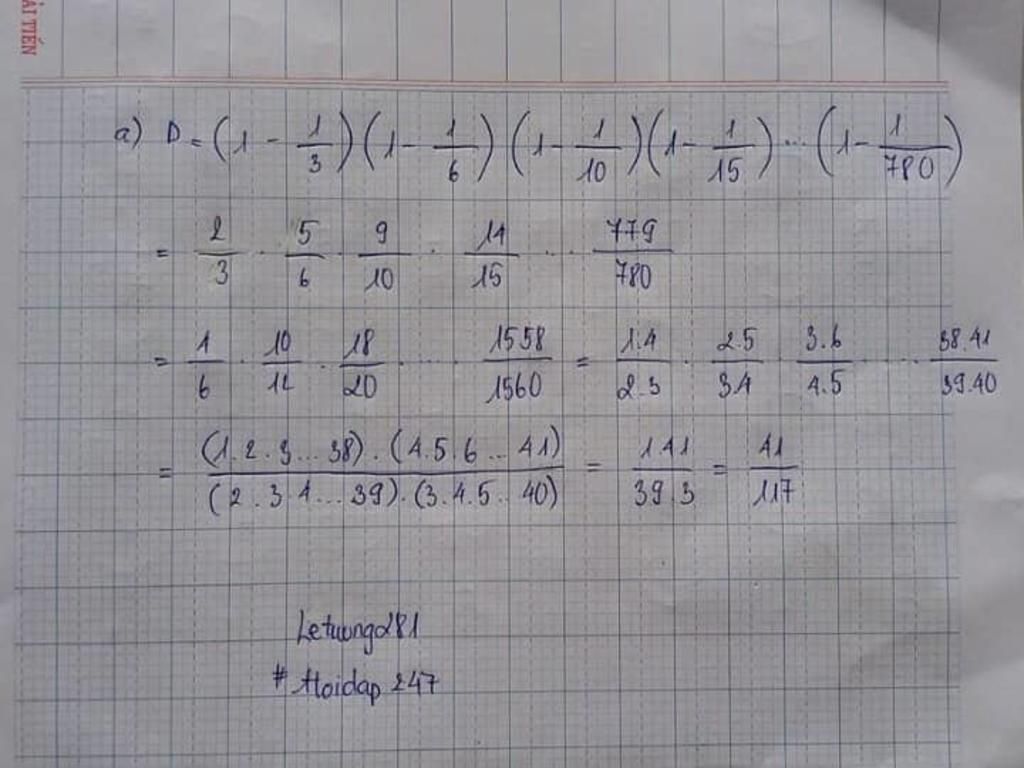 ẢI TIẾN
a) D = (1 - 1/3)(1 - 1/6)(1 - 1/10)(1 - 1/15)...(1 - 1/780)
= 2/3 . 5/6 . 9/10 . 14/15 ... 779/780
= 1/6 . 10/12 . 18/20 ..... 1558/1560 = 1.4/2.3 . 2.5/3.4 . 3.6/4.5 .... 38.41/39.40
= (1.2.3...38).(4.5.6...41)/(2.3.4...39).(3.4.5...40) = 1.41/39.3 = 41/117
Letuong281
# Hoidap 247